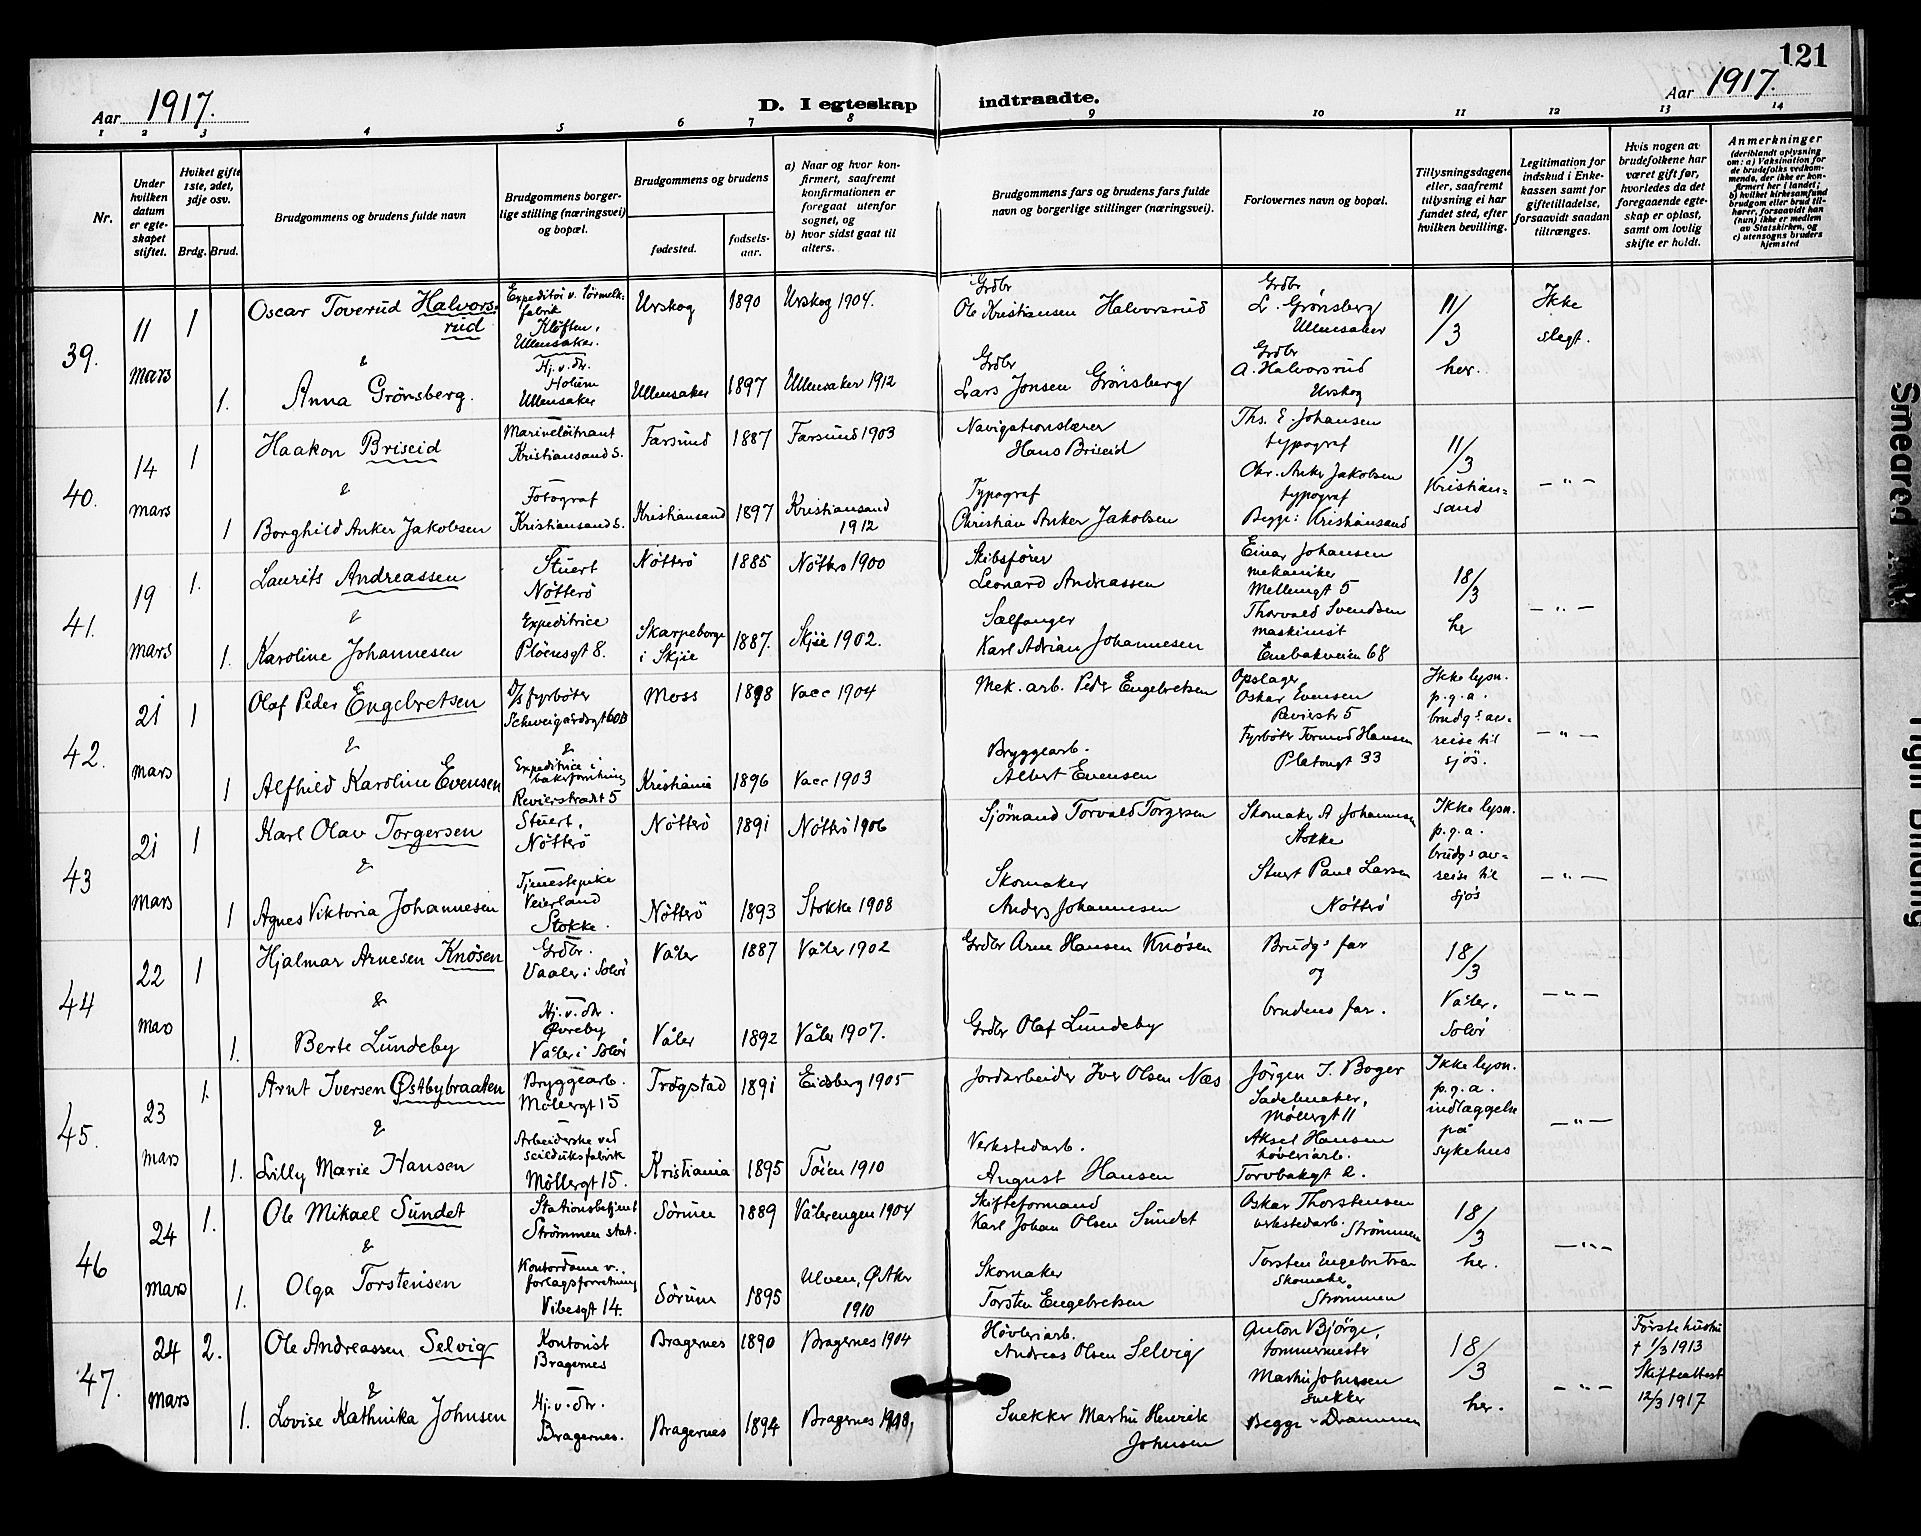 121
Aar 1917.
D. I egteskap indtraadte.
Aar 1917.
1 2 3 4 5 6 7 8 9 10 11 12 13 14
Nr.
Under hvilken datum er egteskapet stiftet.
Hviket gifte 1ste, 2det, 3dje osv.
Brdg. Brud.
Brudgommens og brudens fulde navn
Brudgommens borgerlige stilling (næringsvei) og bopæl.
Brudgommens og brudens
fødested.
fødselsaar.
a) Naar og hvor konfirmert, saafremt konfirmationen er foregaat utenfor sognet, og
b) hvor sidst gaat til alters.
Brudgommens fars og brudens fars fulde navn og borgerlige stillinger (næringsvei).
Forlovernes navn og bopæl.
Tillysningsdagene eller, saafremt tillysning ei har fundet sted, efter hvilken bevilling.
Legitimation for indskud i Enkekassen samt for giftetilladelse, forsaavidt saadan tiltrænges.
Hvis nogen av brudefolkene har været gift før, hvorledes da det foregaaende egteskap er opløst, samt om lovlig skifte er holdt.
Anmerkninger
(deriblandt oplysning om: a) Vaksination for de brudefolks vedkommende, der ikke er konfirmert her i landet; b) hvilket kirkesamfund brudgom eller brud tilhører, forsaavidt han (hun) ikke er medlem av Statskirken, og c) utensogns bruders hjemsted
39.
11 Mars
1
Oscar Toverud Halvorsrud
Expeditør v. tørmelkfabrik
Kløften, Ullensaker.
Urskog
1890
Urskog 1904.
Grdbr
Ole Kristiansen Halvorsrud
Grdbr
L. Grönsberg
Ullensaker
11/3
her.
Ikke slegt.
&
1.
Anna Grönsberg.
Hj. v. dr.
Holum
Ullensaker
Ullensaker
1897
Ullensaker 1912
Grdbr
Lars Jonsen Grönsberg
Grdbr
A. Halvorsrud
Urskog
40.
14 mars
1
Haakon Briseid
Marineløitnant
Kristiansand S.
Farsund
1887
Farsund 1903
Navigationslærer
Hans Briseid
Ths. E Johansen
typograf
11/3
Kristiansand
— " —
&
1
Borghild Anker Jakobsen
Fotograf
Kristiansand S.
Kristiansand
1897
Kristiansand 1912
Typograf
Christian Anker Jakobsen
Chr. Anker Jakobsen
typograf
Begge: Kristiansand
41.
19 mars
1.
Laurits Andreassen
Stuert
Nötterö
Nötterö
1885
Nöttrö 1900
Skibsfører
Leonard Andreassen
Einar Johansen
mekaniker
Mellemgt 5
18/3
her
— " —
&
1.
Karoline Johannesen
Expeditrice
Pløensgt 8.
Skarpeborge i Skjie
1887.
Skjie 1902.
Sælfanger
Karl Adrian Johannesen
Thorvald Svendsen
maskinist
Enebakveien 68
42.
21 mars
1
Olaf Peder Engebretsen
D/S fyrbøter
Schweigaardsgt 60B
Moss
1898
Vacc 1904
Mek. arb. Peder Engebretsen
Opslager
Oskar Evensen
Revierstr 5
Ikke lysn.
p.g.a.
brudg: avreise til sjös.
— " —
&
1
Alfhild Karoline Evensen
Expeditrice i bakerforretning
Revierstrædet 5
Kristiania
1896
Vacc 1903
Bryggearb.
Albert Evensen
Fyrbøter Tormod Hansen
Platousgt 33
43
21 mars
1
Karl Olav Torgersen
Stuert,
Nötterö
Nötterö
1891
Nötterö 1906
Sjömand Torvald Torgersen
Skomaker A Johannesen
Stokke
Ikke lysn.
p.g.a.
brudgs avreise til sjös
— " —
&
1
Agnes Viktoria Johannesen
Tjenestepike
Veierland
Stokke.
Nötterö
1893
Stokke 1908
Skomaker
Anders Johannesen
Stuert Paul Larsen
Nötterö
44
22 mars
1
Hjalmar Arnesen Knösen
Grdbr.
Vaaler i Solör
Våler
1887
Våler 1902
Grdbr Arne Hansen Knösen
Brudgs far
og
brudens far.
18/3
Våler, Solör
— " —
&
1.
Berte Lundeby
Hj. v. dr.
Øvreby
Våler i Solör
Våler
1892
Våler 1907.
Grdbr Olaf Lundeby
45.
23 mars
1.
Arnt Iversen Østbybraaten
Bryggearb.
Möllergt 15
Trögstad
1891
Eidsberg 1905
Jordarbeider Iver Olsen Næs
Jörgen J. Boger
Sadelmaker,
Möllergt 11
Ikke lysn.
p.g.a.
indlæggelse på sykehus
— " —
&
1.
Lilly Marie Hansen
Arbeiderske ved seilduksfabrik
Möllergt 15.
Kristiania
1895
Töien 1910
Verkstedarb.
August Hansen
Aksel Hansen
høvleriarb.
Torvbakgt 2.
46
24 mars
1.
Ole Mikael Sundet
Stationsbetjent
Strömmen stat.
Sörum
1889
Vålerengen 1904
Skifteformand
Karl Johan Olsen Sundet
Oskar Thorstensen
verkstedarb. Strömmen
18/3
her.
— " —
&
1.
Olga Torstensen
Kontordame v. forlagsforretning
Vibesgt 14.
Sörum
1895
Ulven, Ø Aker 1910
Skomaker
Torsten Engebretsen
Torsten Engebretsen
Skomaker
Strömmen
47.
24 mars
2.
Ole Andreassen Selvig
Kontorist
Bragernes
Bragernes
1890
Bragernes 1904
Høvleriarb.
Andreas Olsen Selvig
Anton Bjørge,
tømmermester
18/3
her.
— " —
Förste hustru
† 1/3 1913
Skifteattest
12/3 1917
&
1.
Lovise Kathinka Johnsen
Hj. v. dr.
Bragernes.
Bragernes
1894
Bragernes
Snekker Martin Henrik Johnsen
Martin Johnsen
snekker
Begge Drammen
Smeared
Tight Binding